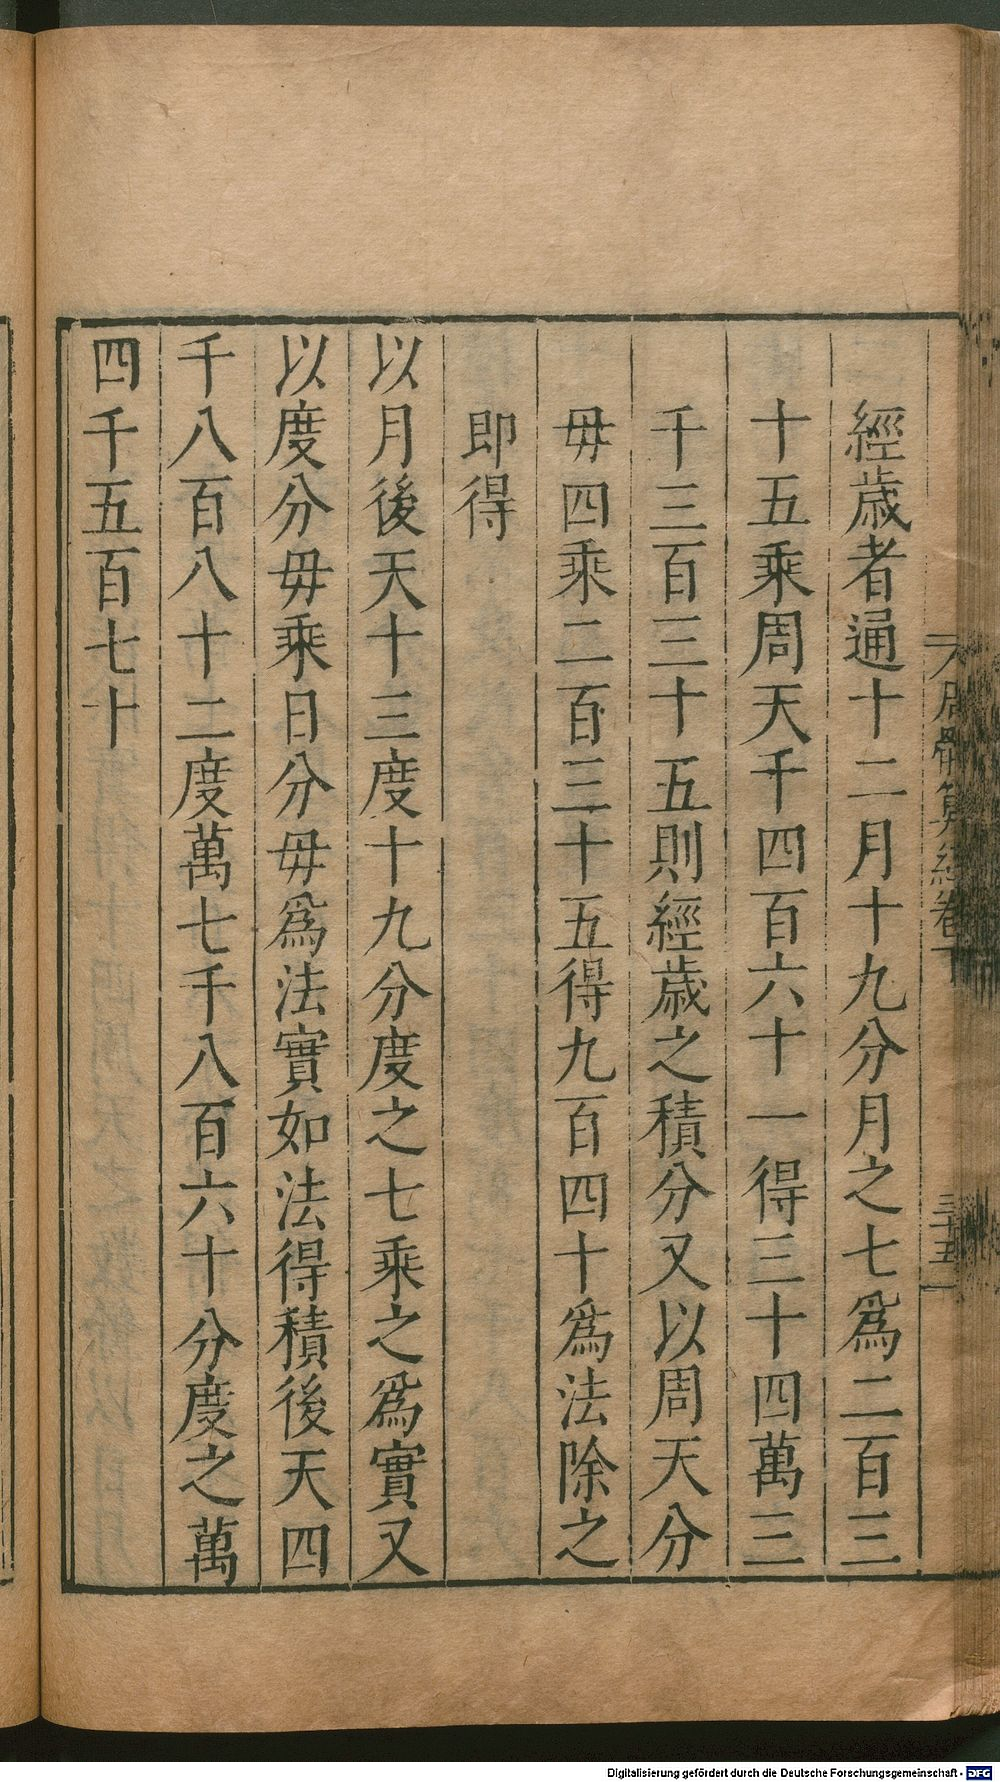 經歲者通十二月十九分月之七爲二百三
十五乘周天千四百六十一得三十四萬三
千三百三十五則經歲之積分又以周天分
毋四乘二百三十五得九百四十爲法除之
即得
以月後天十三度十九分度之七乘之爲實又
以度分毋乘日分毋爲法實如法得積後天四
千八百八十二度萬七千八百六十分度之萬
四千五百七十
周髀算經卷下
三十五
Digitalisierung gefördert durch die Deutsche Forschungsgemeinschaft - DFG